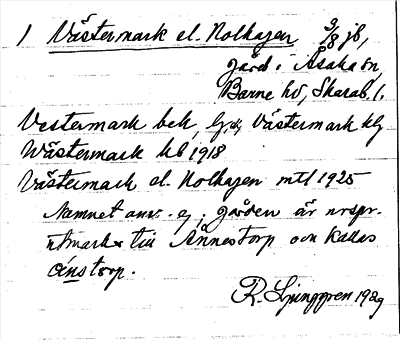 1 Västermark el. Nolhagen 3/8 jb,
gård i Åsaka sn,
Barne hd, Skarab. l.
Vestermark bek, Västermark
Wästermark kb 1918
Västermark el. Nolhagen mtl 1925
Namnet anv. ej; gården är urspr.
utmark till Ånnestorp och kallas
Ånstorp.
R. Ljunggren 1929